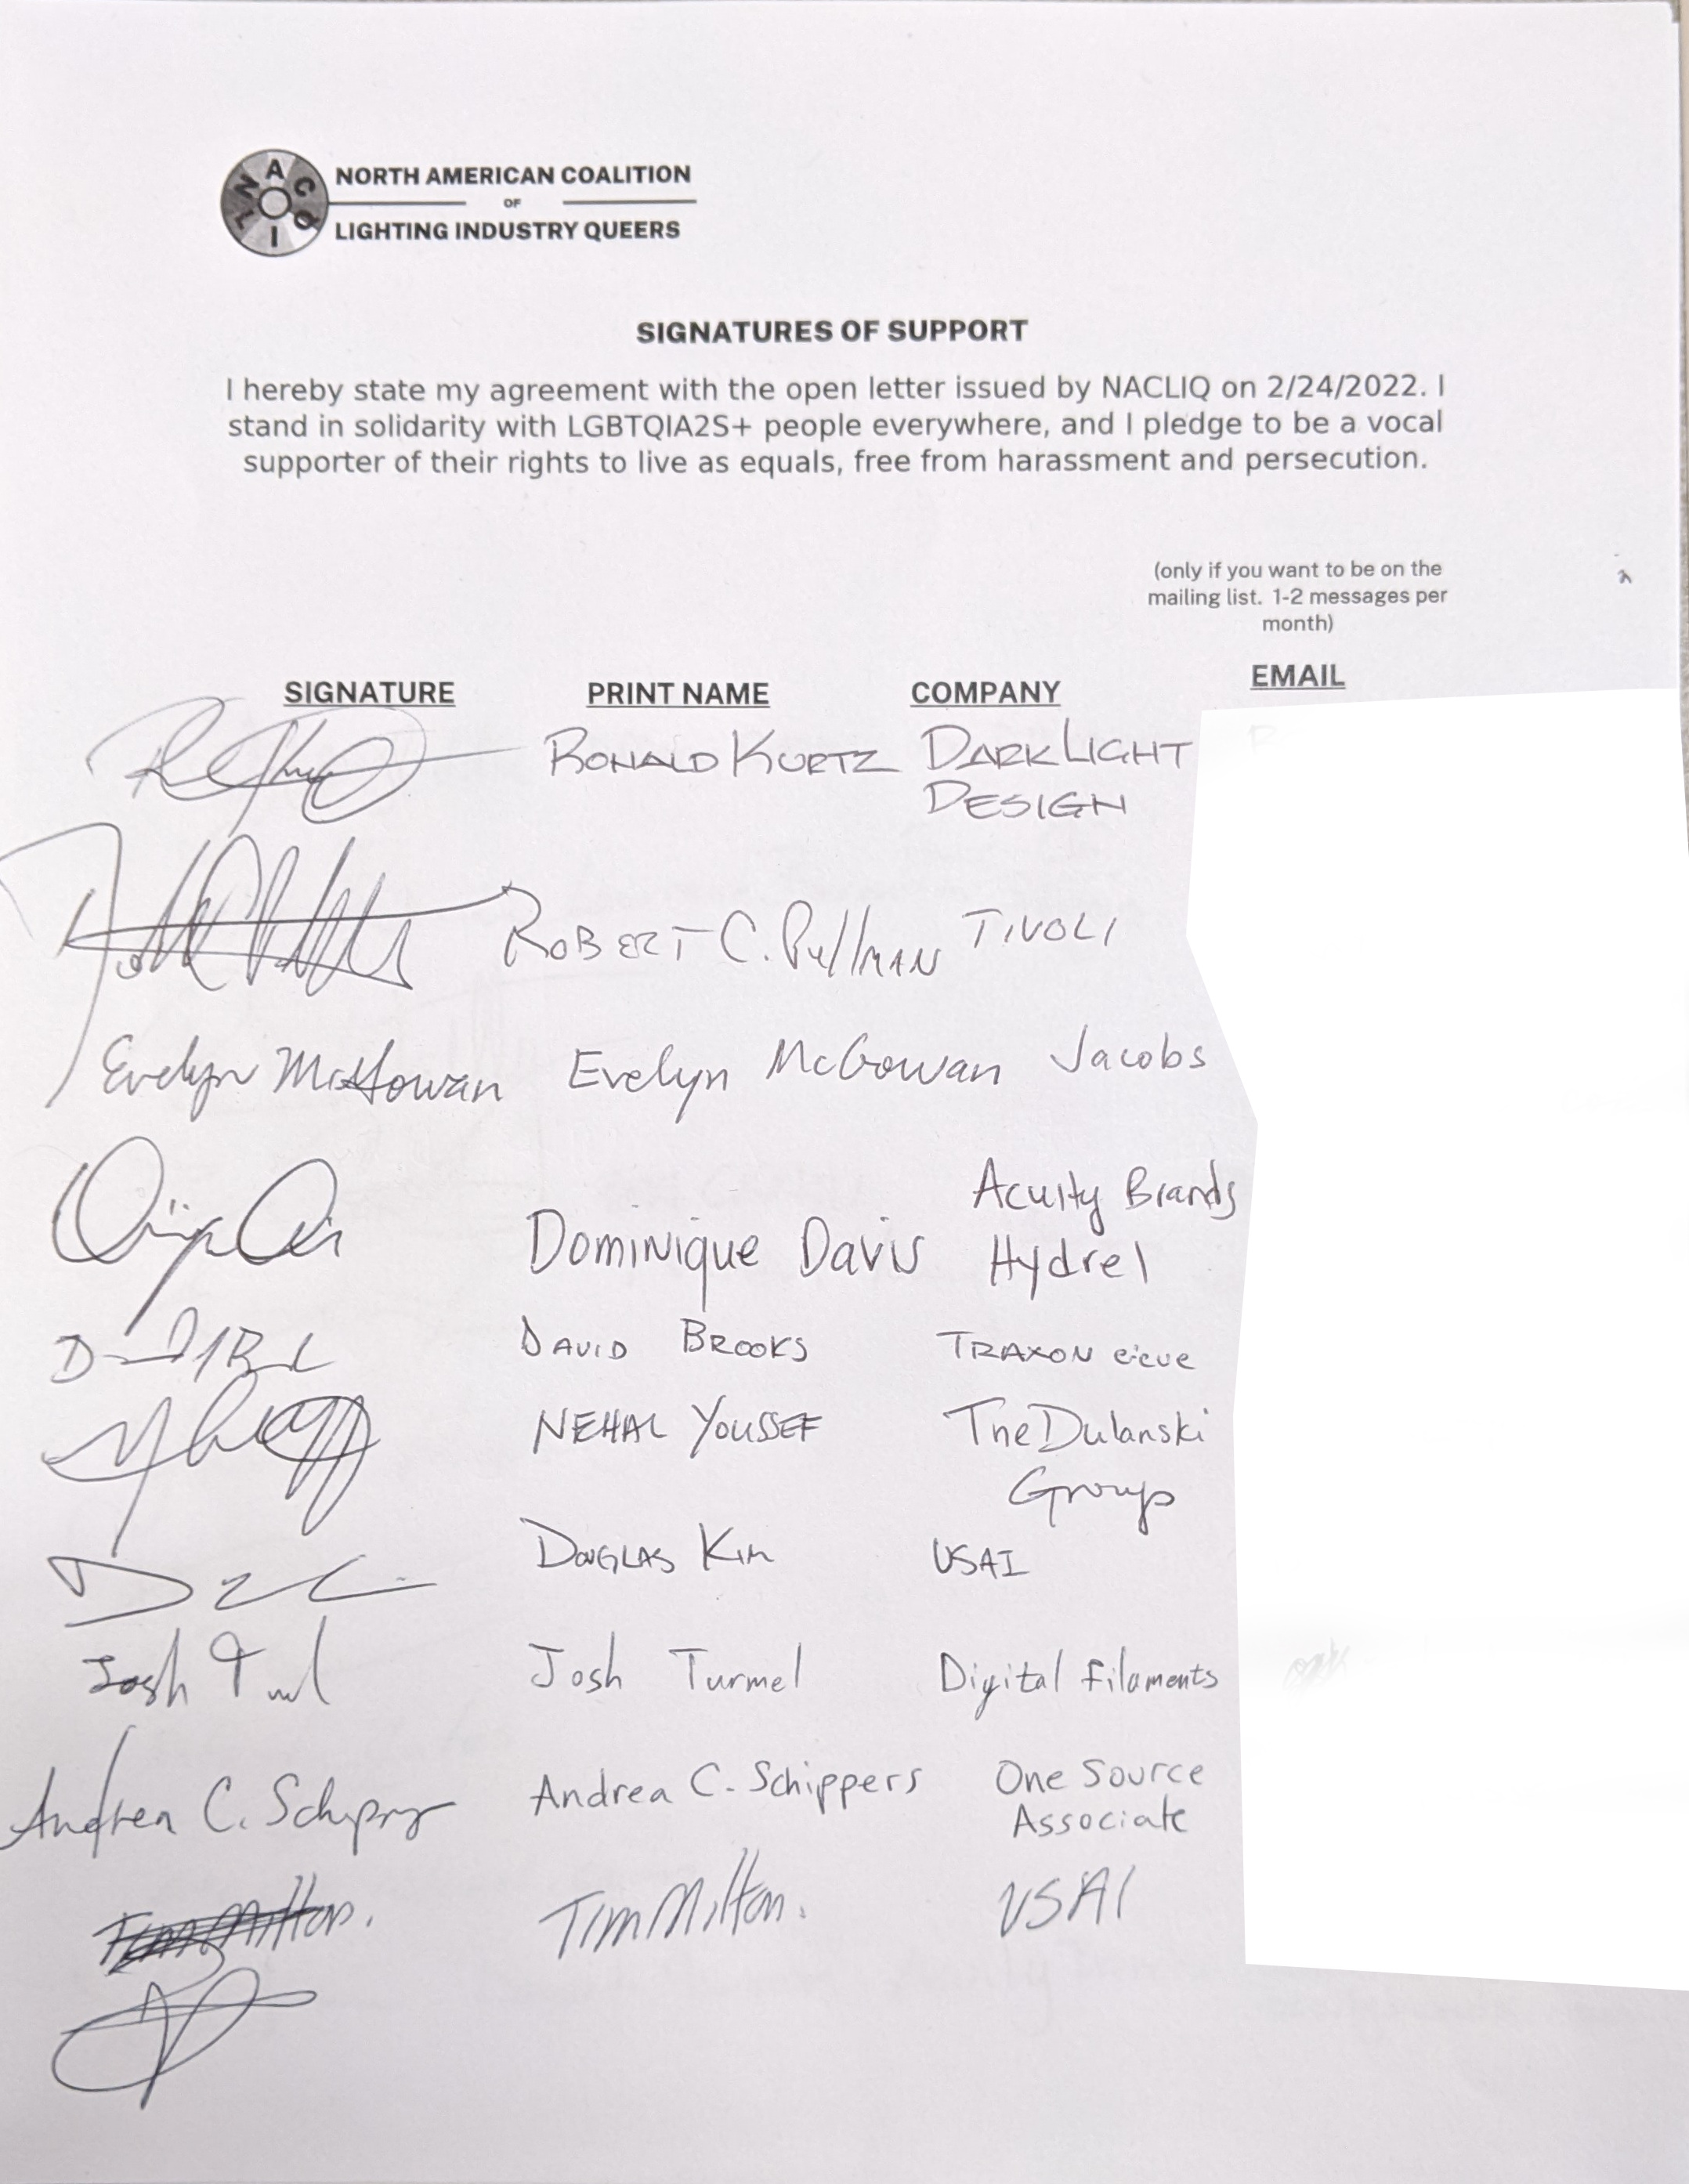 NACLIQ
NORTH AMERICAN COALITION
OF
LIGHTING INDUSTRY QUEERS
SIGNATURES OF SUPPORT
I hereby state my agreement with the open letter issued by NACLIQ on 2/24/2022. I
stand in solidarity with LGBTQIA2S+ people everywhere, and I pledge to be a vocal
supporter of their rights to live as equals, free from harassment and persecution.
(only if you want to be on the
mailing list. 1-2 messages per
month)
SIGNATURE PRINT NAME COMPANY EMAIL
RONALD KURTZ DARKLIGHT
DESIGN
ROBERT C. Pullman TIVOLI
Evelyn McGowan Evelyn McGowan Jacobs
Acuity Brands
Dominique Davis Hydrel
DAVID BROOKS TRAXON e:cue
NEHAL YOUSSEF The Dulanski
Group
DOUGLAS KIM USAI
Josh Josh Turmel Digital Filaments
Andrea C. Schippers Andrea C. Schippers One Source
Associate
Tim Milton. Tim Milton. USAI